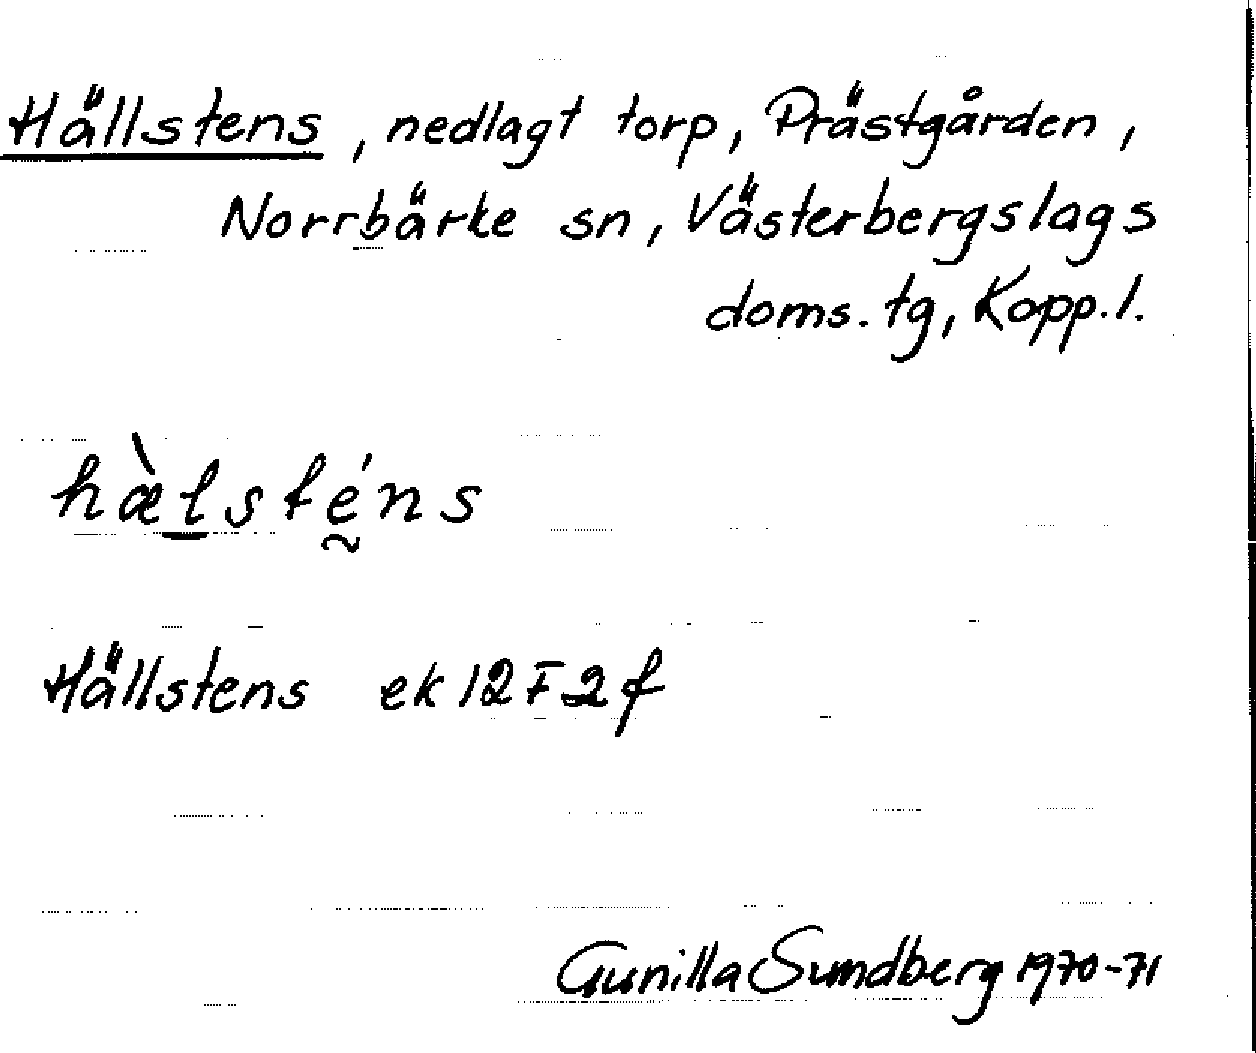 Hällstens, nedlagt torp, Prästgården,
Norrbärke sn, Västerbergslags
doms. tg, Kopp. l.
hæ̀l̠stḛ́ns
Hällstens ek 12F2f
Gunilla Sundberg 1970-71